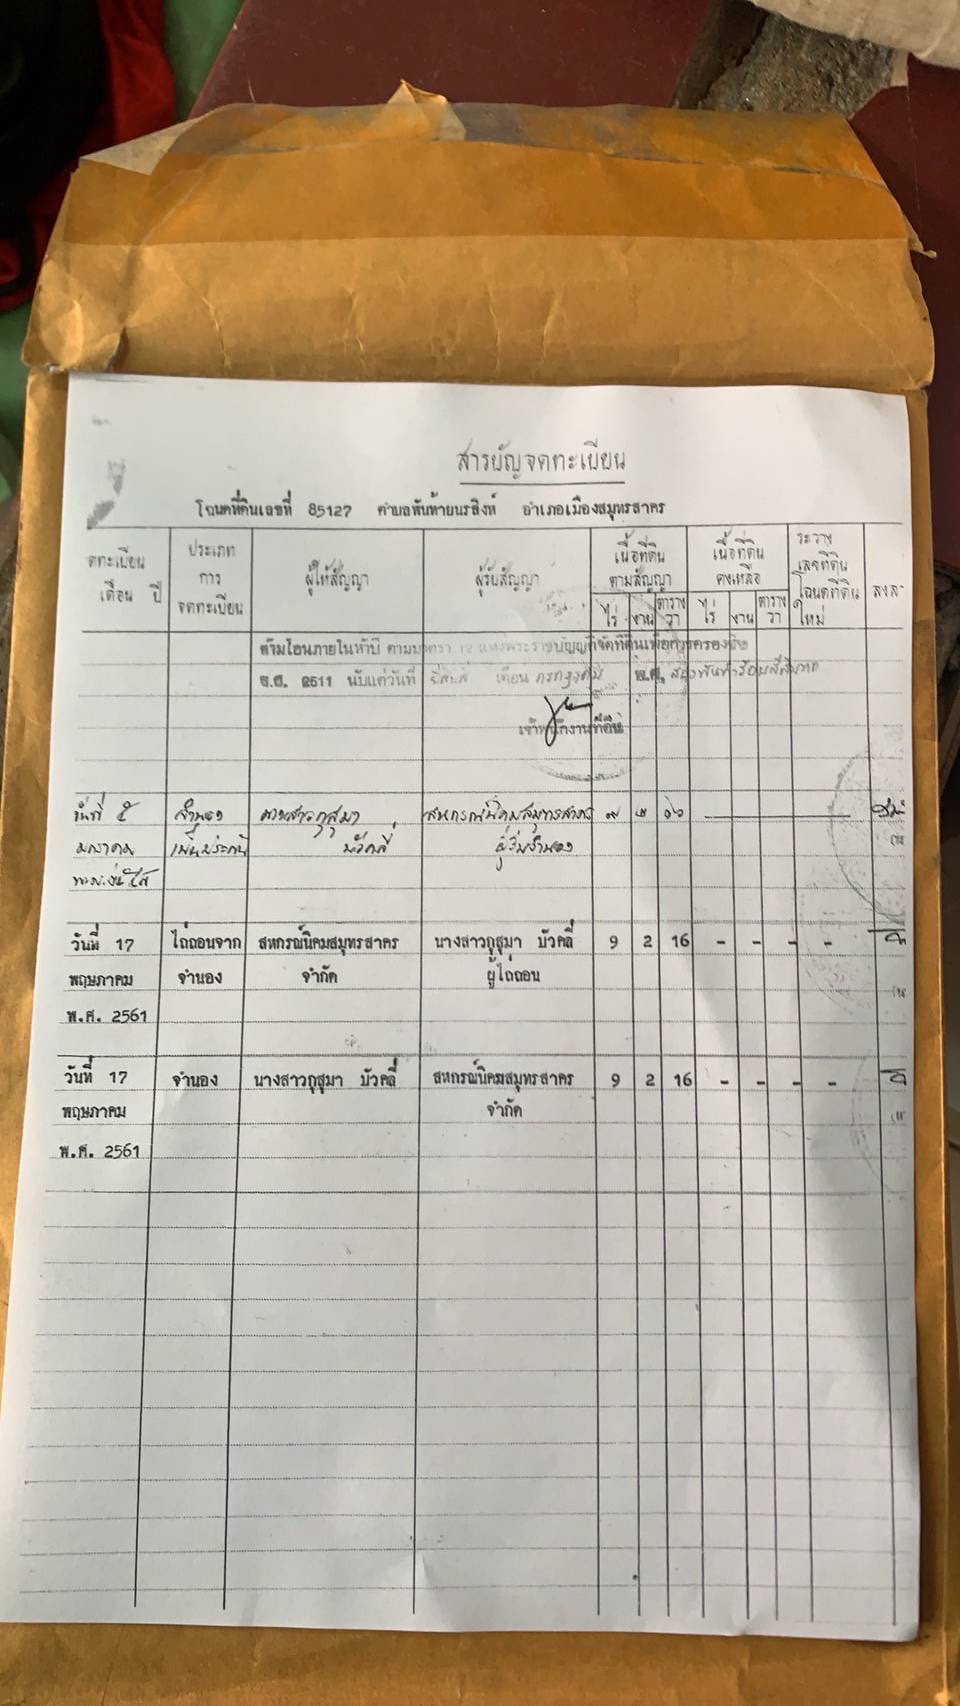 สารบัญจดทะเบียน
โฉนดที่ดินเลขที่ 85127 ตำบลพันท้ายนรสิงห์ อำเภอเมืองสมุทรสาคร
ดทะเบียน ประเภท ผู้ให้สัญญา ผู้รับสัญญา เนื้อที่ดิน เนื้อที่ดิน ระวาง
เดือน ปี การ ตามสัญญา คงเหลือ เลขที่ดิน
จดทะเบียน ไร่ งาน ตาราง ไร่ งาน ตาราง โฉนดที่ดิน
วา วา ใหม่
ห้ามโอนภายในห้าปี ตามมาตรา 12 แห่งพระราชบัญญัติจัดที่ดินเพื่อการครองชีพ
พ.ศ. 2511 นับแต่วันที่ ยี่สิบสี่ เดือน กรกฎาคม พ.ศ. สองพันห้าร้อยสี่สิบ
เจ้าพนักงานที่ดิน
วันที่ ๕ จำนอง นางสาวกุสุมา สหกรณ์นิคมสมุทรสาคร ๙ ๒ ๑๖
เป็นประกัน บัวคลี่ ผู้รับจำนอง
วันที่ 17 ไถ่ถอนจาก สหกรณ์นิคมสมุทรสาคร นางสาวกุสุมา บัวคลี่ 9 2 16 - - - -
พฤษภาคม จำนอง จำกัด ผู้ไถ่ถอน
พ.ศ. 2561
วันที่ 17 จำนอง นางสาวกุสุมา บัวคลี่ สหกรณ์นิคมสมุทรสาคร 9 2 16 - - - -
พฤษภาคม จำกัด
พ.ศ. 2561